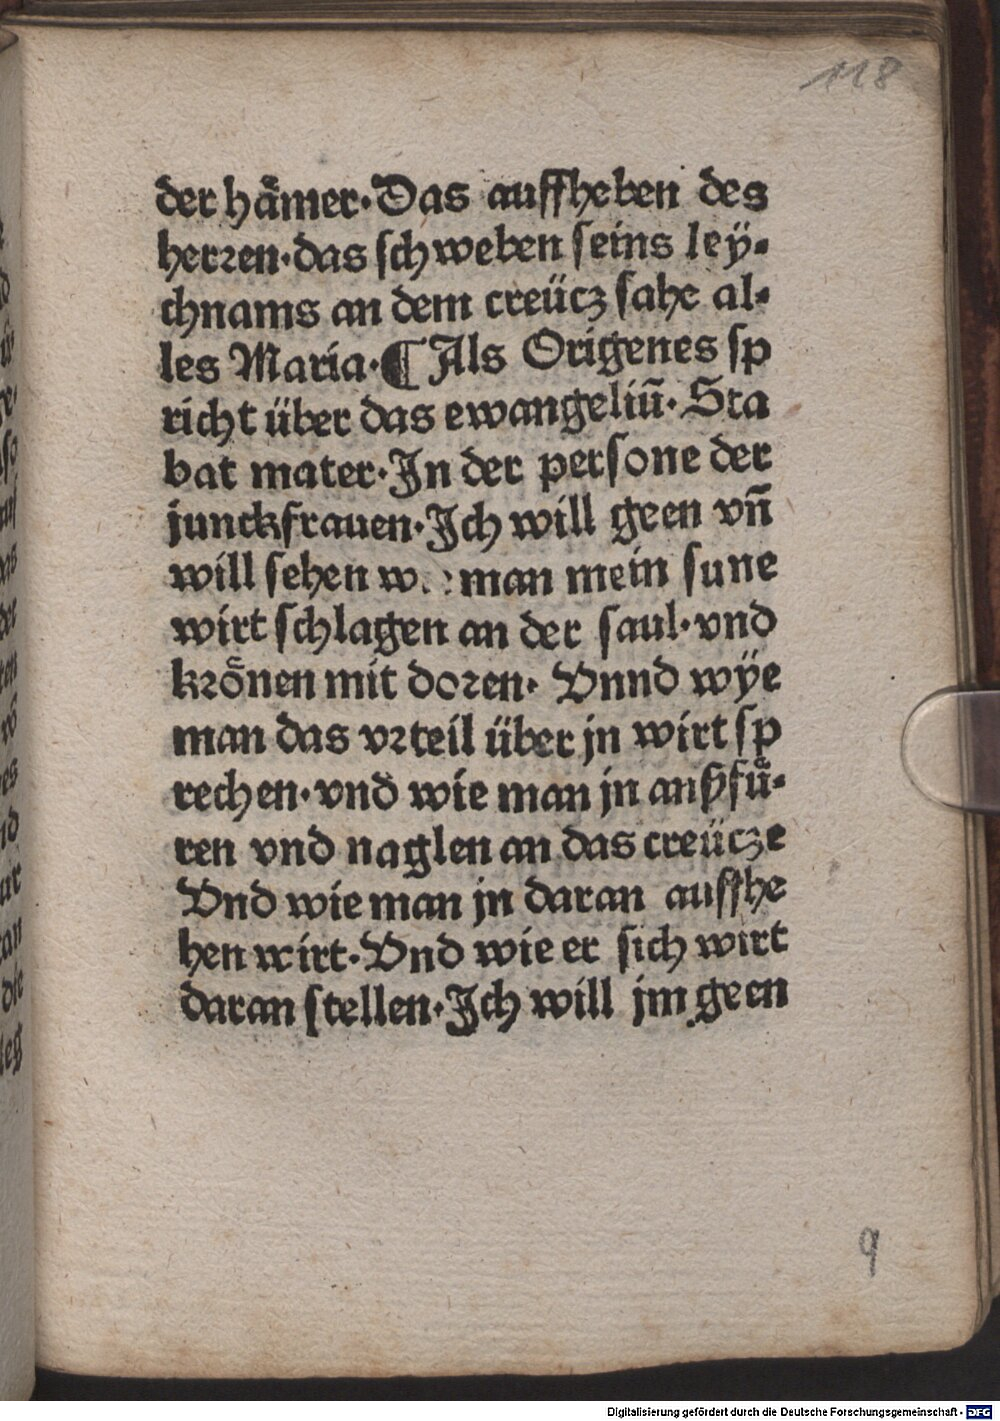 118
der hämer·Das auffheben des
herꝛen·das schweben seins leÿ-
chnams an dem creücz sahe al-
les Maria·¶Als Origenes sp
richt über das ewangeliū·Sta
bat mater·In der persone der
junckfrauen·Ich will geen vn̄
will sehen man mein sune
wirt schlagen an der saul·vnd
krönen mit doꝛen· Vnnd wÿe
man das vꝛteil über jn wirt sp
rechen·vnd wie man jn anßfuͤ-
ren vnd naglen an das creücze
Vnd wie man jn daran auffhe
hen wirt·Vnd wie er sich wirt
daran stellen·Ich will jm geen
q
Digitalisierung gefördert durch die Deutsche Forschungsgemeinschaft - DFG